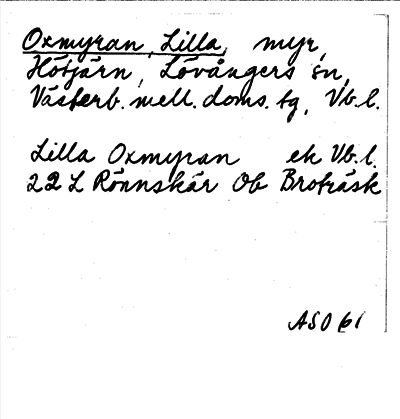 Oxmyran, Lilla, myr,
Hötjärn, Lövångers sn,
Västerb. mell. doms. tg, Vb. l.
Lilla Oxmyran ek Vb. l.
22 L Rönnskär Ob Broträsk
ASO 61